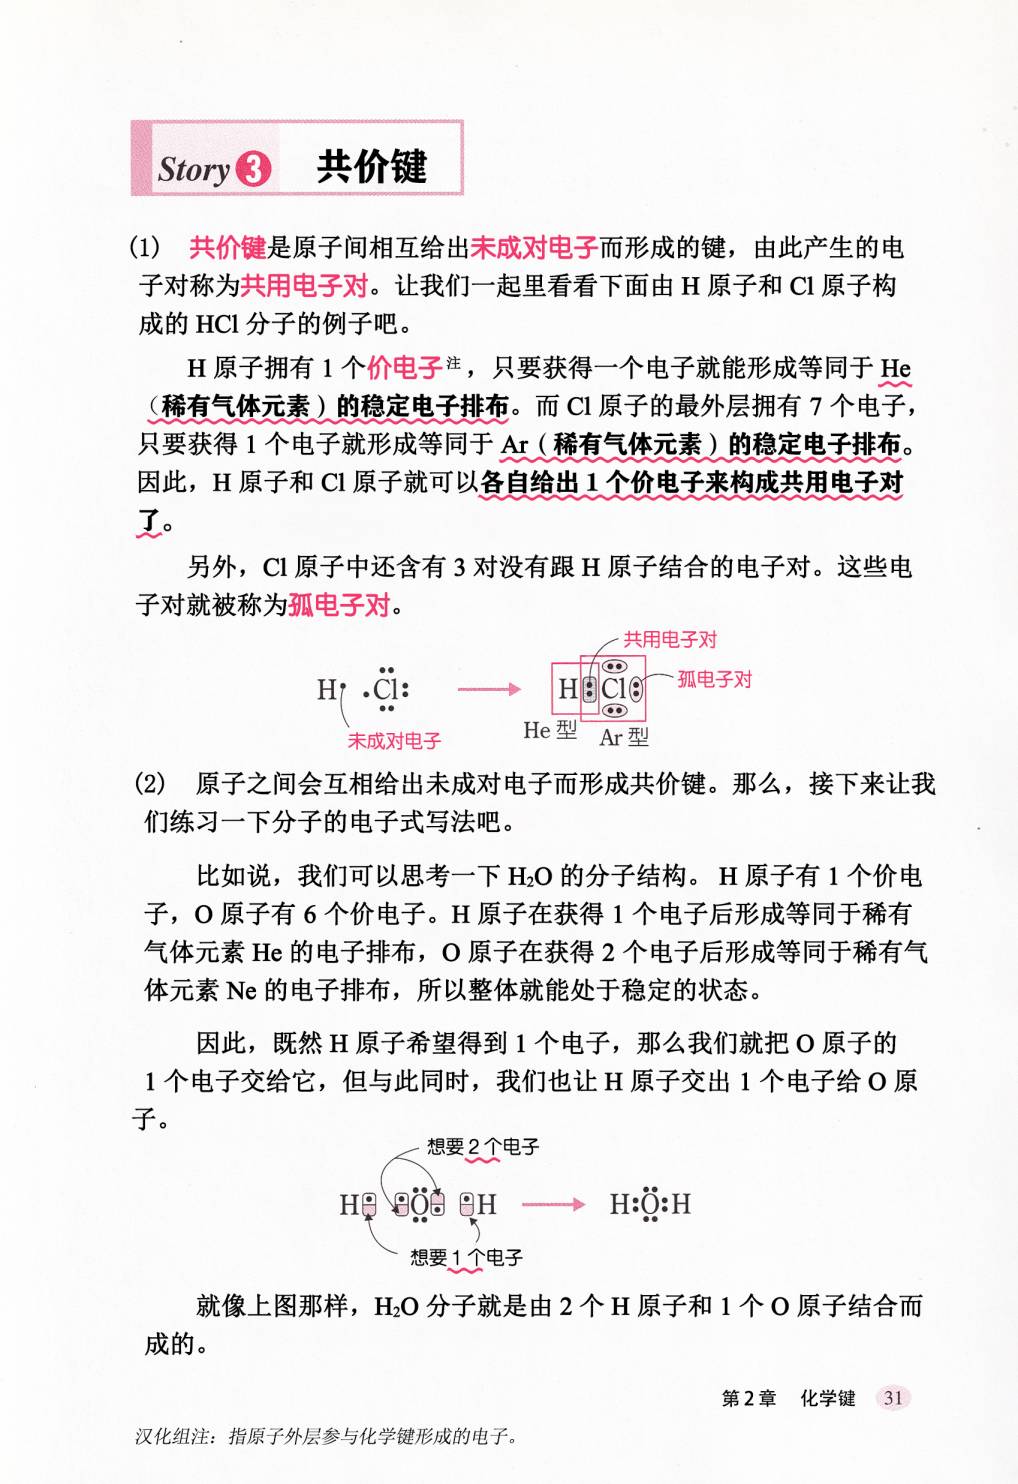 Story 3 共价键
(1) 共价键是原子间相互给出未成对电子而形成的键，由此产生的电
子对称为共用电子对。让我们一起里看看下面由 H 原子和 Cl 原子构
成的 HCl 分子的例子吧。
H 原子拥有 1 个价电子注，只要获得一个电子就能形成等同于 He
（稀有气体元素）的稳定电子排布。而 Cl 原子的最外层拥有 7 个电子，
只要获得 1 个电子就形成等同于 Ar（稀有气体元素）的稳定电子排布。
因此，H 原子和 Cl 原子就可以各自给出 1 个价电子来构成共用电子对
了。
另外，Cl 原子中还含有 3 对没有跟 H 原子结合的电子对。这些电
子对就被称为孤电子对。
共用电子对
H· ·Cl: → H:Cl: 孤电子对
He 型 Ar 型
未成对电子
(2) 原子之间会互相给出未成对电子而形成共价键。那么，接下来让我
们练习一下分子的电子式写法吧。
比如说，我们可以思考一下 H₂O 的分子结构。 H 原子有 1 个价电
子，O 原子有 6 个价电子。H 原子在获得 1 个电子后形成等同于稀有
气体元素 He 的电子排布，O 原子在获得 2 个电子后形成等同于稀有气
体元素 Ne 的电子排布，所以整体就能处于稳定的状态。
因此，既然 H 原子希望得到 1 个电子，那么我们就把 O 原子的
1 个电子交给它，但与此同时，我们也让 H 原子交出 1 个电子给 O 原
子。
想要 2 个电子
H· ·O· ·H → H:O:H
想要 1 个电子
就像上图那样，H₂O 分子就是由 2 个 H 原子和 1 个 O 原子结合而
成的。
第 2 章 化学键 31
汉化组注：指原子外层参与化学键形成的电子。